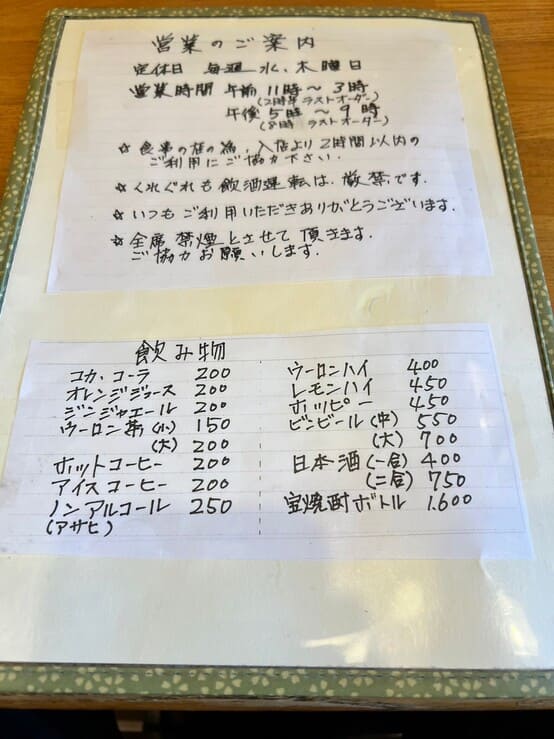 営業のご案内
定休日 毎週 水、木曜日
営業時間 午前 11時〜3時
(2時半ラストオーダー)
午後 5時〜9時
(8時 ラストオーダー)
☆ 食事の店の為、入店より2時間以内の
ご利用にご協力下さい.
☆くれぐれも飲酒運転は、厳禁です.
☆いつもご利用いただきありがとうございます.
☆全席禁煙とさせて頂きます.
ご協力お願いします.
飲み物
コカ、コーラ 200
オレンジジュース 200
ジンジャエール 200
ウーロン茶(小) 150
(大) 200
ホットコーヒー 200
アイスコーヒー 200
ノンアルコール 250
(アサヒ)
ウーロンハイ 400
レモンハイ 450
ホッピー 450
ビンビール(中) 550
(大) 700
日本酒(一合) 400
(二合) 750
宝焼酎ボトル 1.600